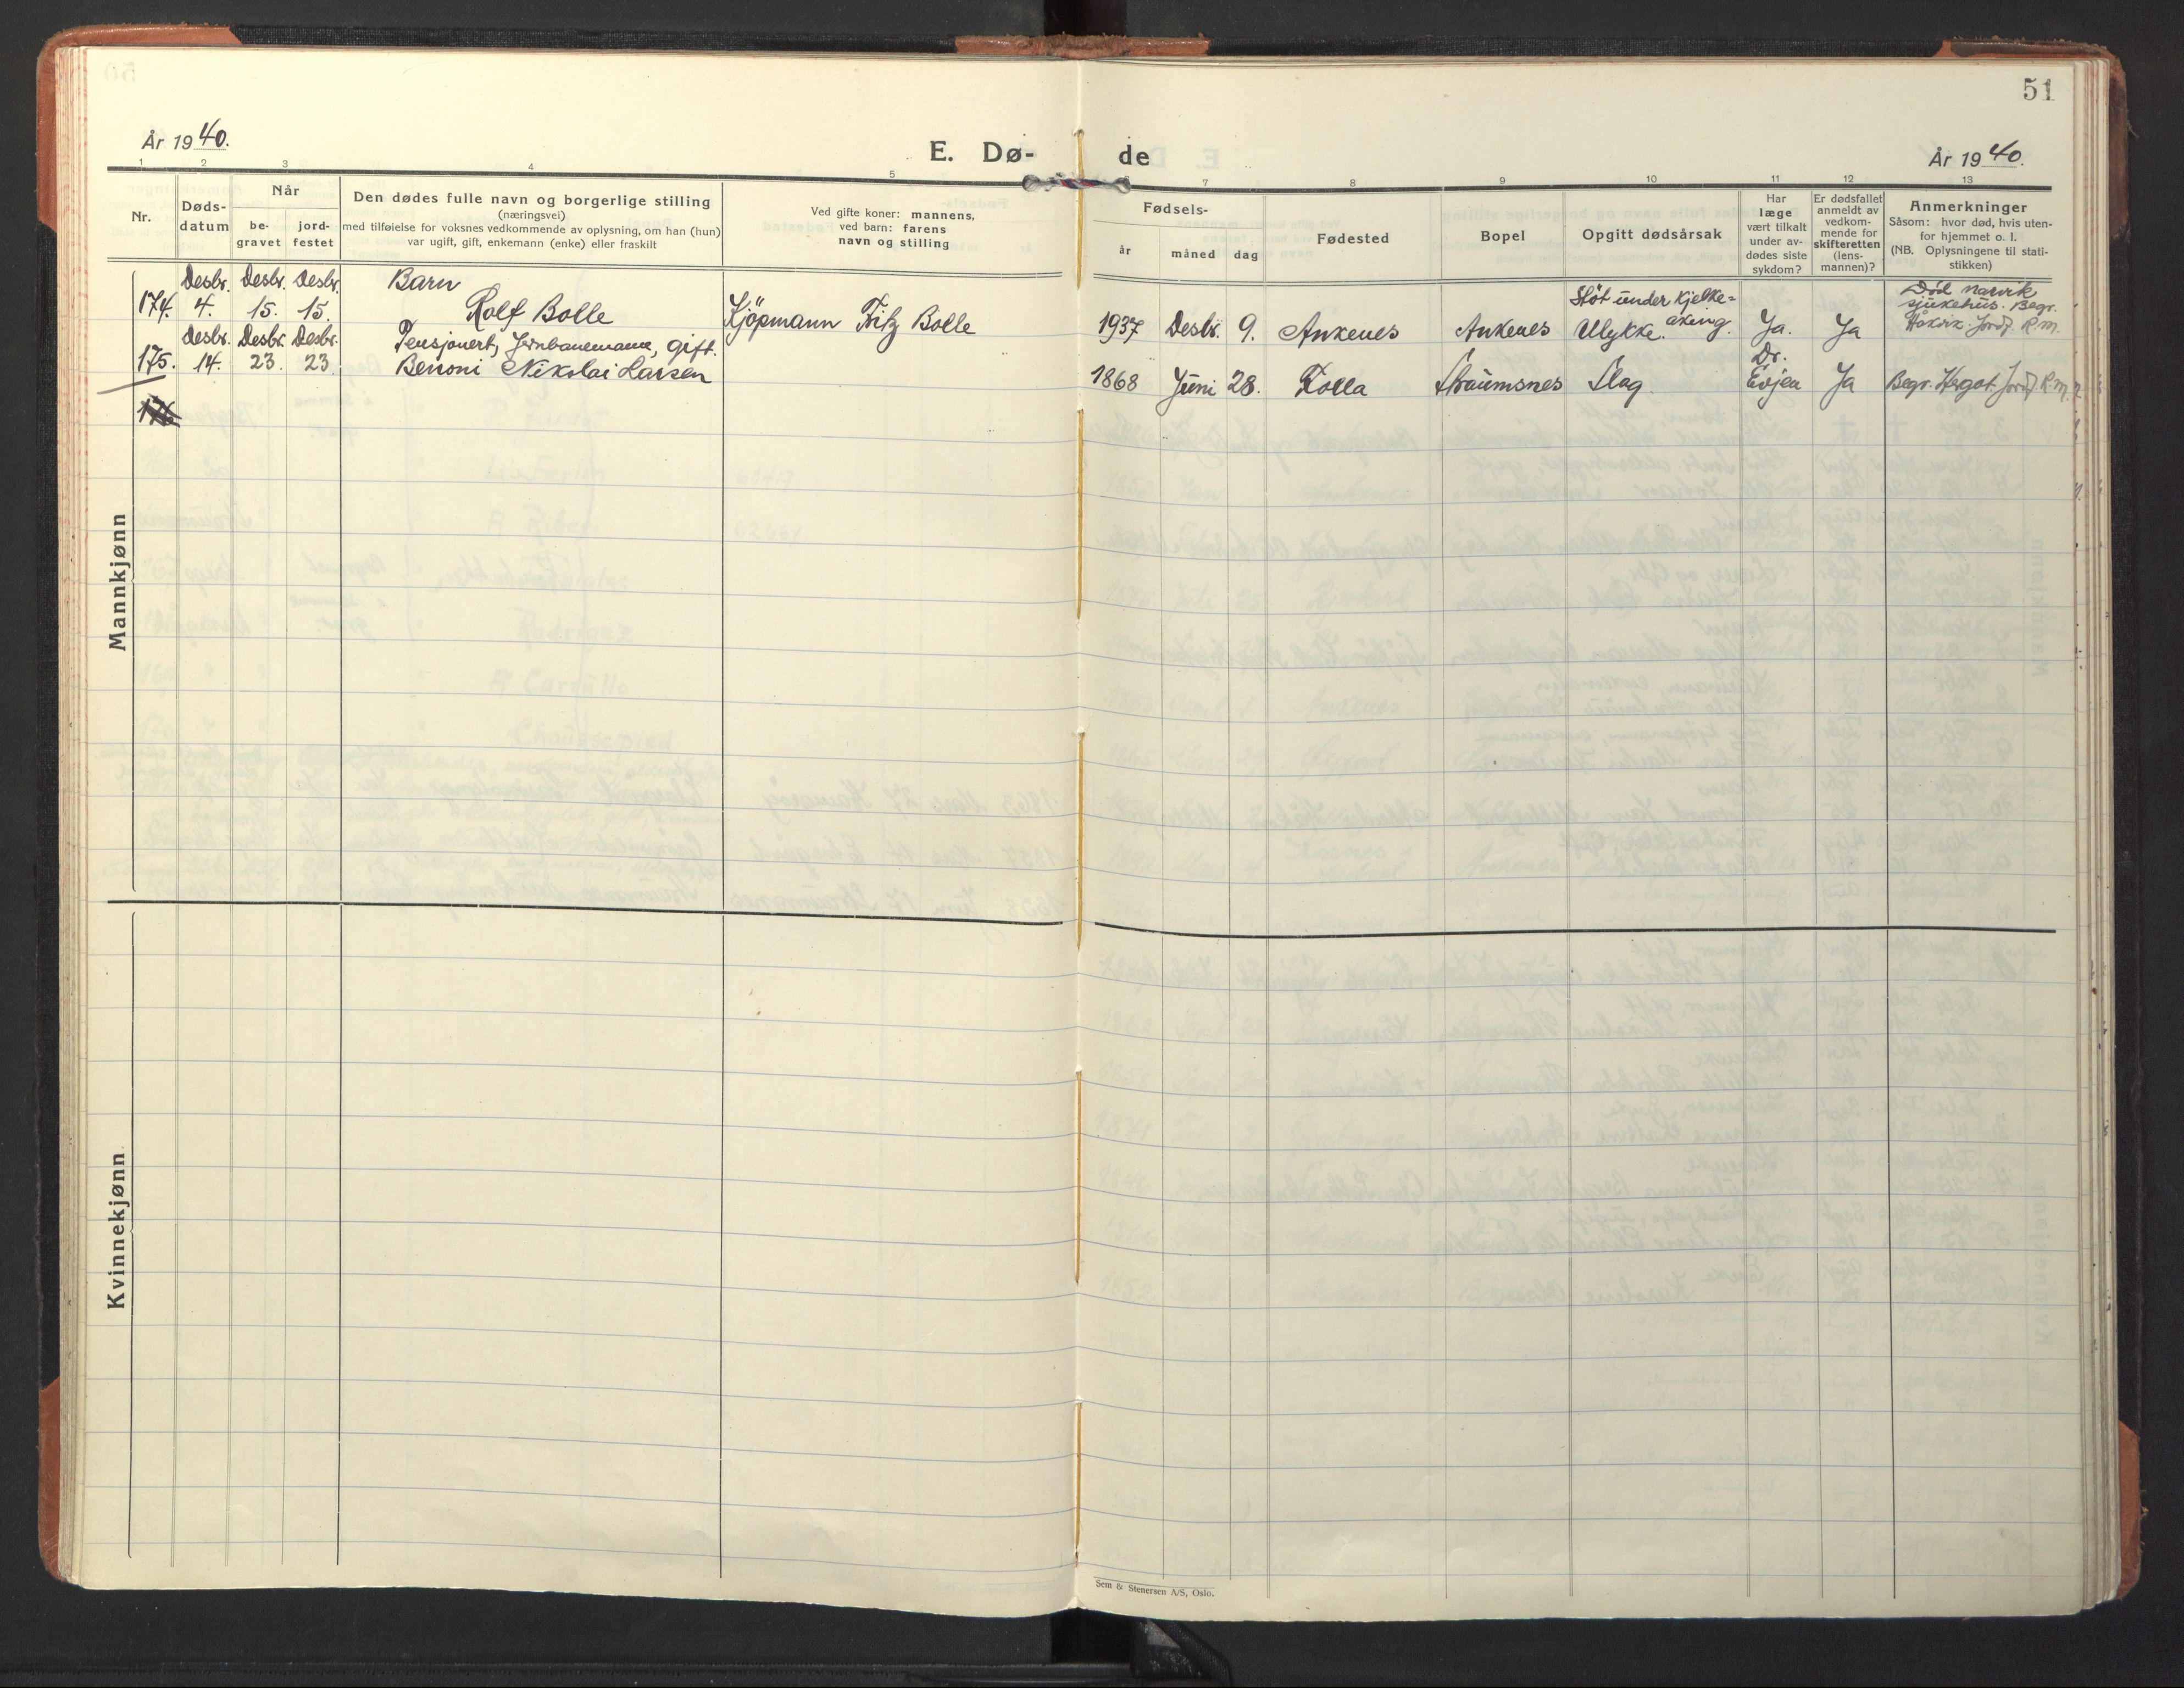 51
År 1940.
E. Dø-
de
År 1940.
1 2 3 4 5 6 7 8 9 10 11 12 13
Nr.
Døds-
datum
Når
be-
gravet
jord-
festet
Den dødes fulle navn og borgerlige stilling
(næringsvei)
med tilføielse for voksnes vedkommende av oplysning, om han (hun)
var ugift, gift, enkemann (enke) eller fraskilt
Ved gifte koner: mannens,
ved barn: farens
navn og stilling
Fødsels-
år
måned
dag
Fødested
Bopel
Opgitt dødsårsak
Har
læge
vært tilkalt
under av-
dødes siste
sykdom?
Er dødsfallet
anmeldt av
vedkom-
mende for
skifteretten
(lens-
mannen)?
Anmerkninger
Såsom: hvor død, hvis uten-
for hjemmet o. l.
(NB. Oplysningene til stati-
stikken)
Mannkjønn
Desbr. Desbr. Desbr. Barn
174. 4. 15. 15. Rolf Bolle Kjöpmann Fritz Bolle
1937 Desbr. 9. Ankenes Ankenes
Stöt under kjelke-
Ulykke. aking.
Ja. Ja
Död Narvik
sjukehus. Begr.
Håkvik. Jordf. R.m.
Desbr. Desbr. Desbr. Pensjonert, Jernbanemann, gift.
175. 14. 23. 23. Benoni Nikolai Larsen
1868 Juni 28. Straumsnes Slag
Dr.
Evjen
Ja
Begr. Hergot. Jordf. R.m.
176
Kvinnekjønn
Sem & Stenersen A/S, Oslo.